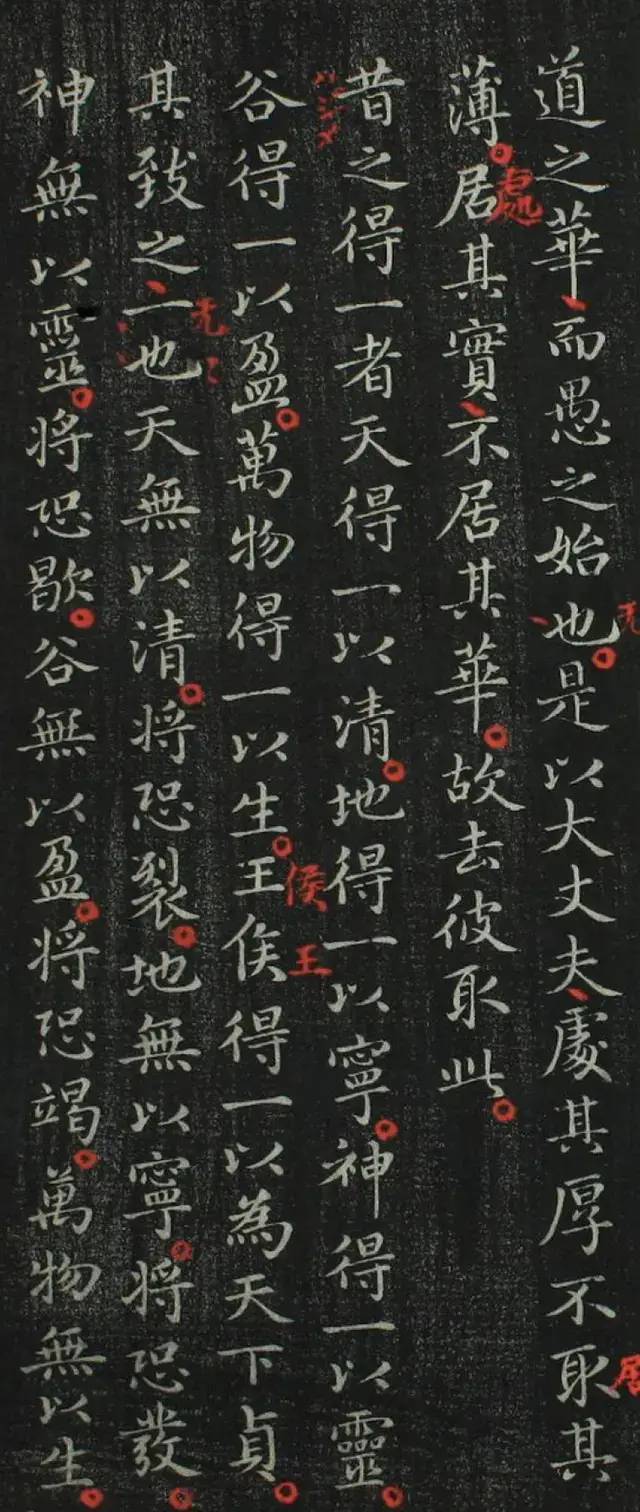 道之華而愚之始也是以大丈夫處其厚不取其
无
居
薄居其實不居其華故去彼取此
處
昔之得一者天得一以清地得一以寧神得一以靈
谷得一以盈萬物得一以生王侯得一以為天下貞
侯
王
其致之一也天無以清將恐裂地無以寧將恐發
无
神無以靈將恐歇谷無以盈將恐竭萬物無以生